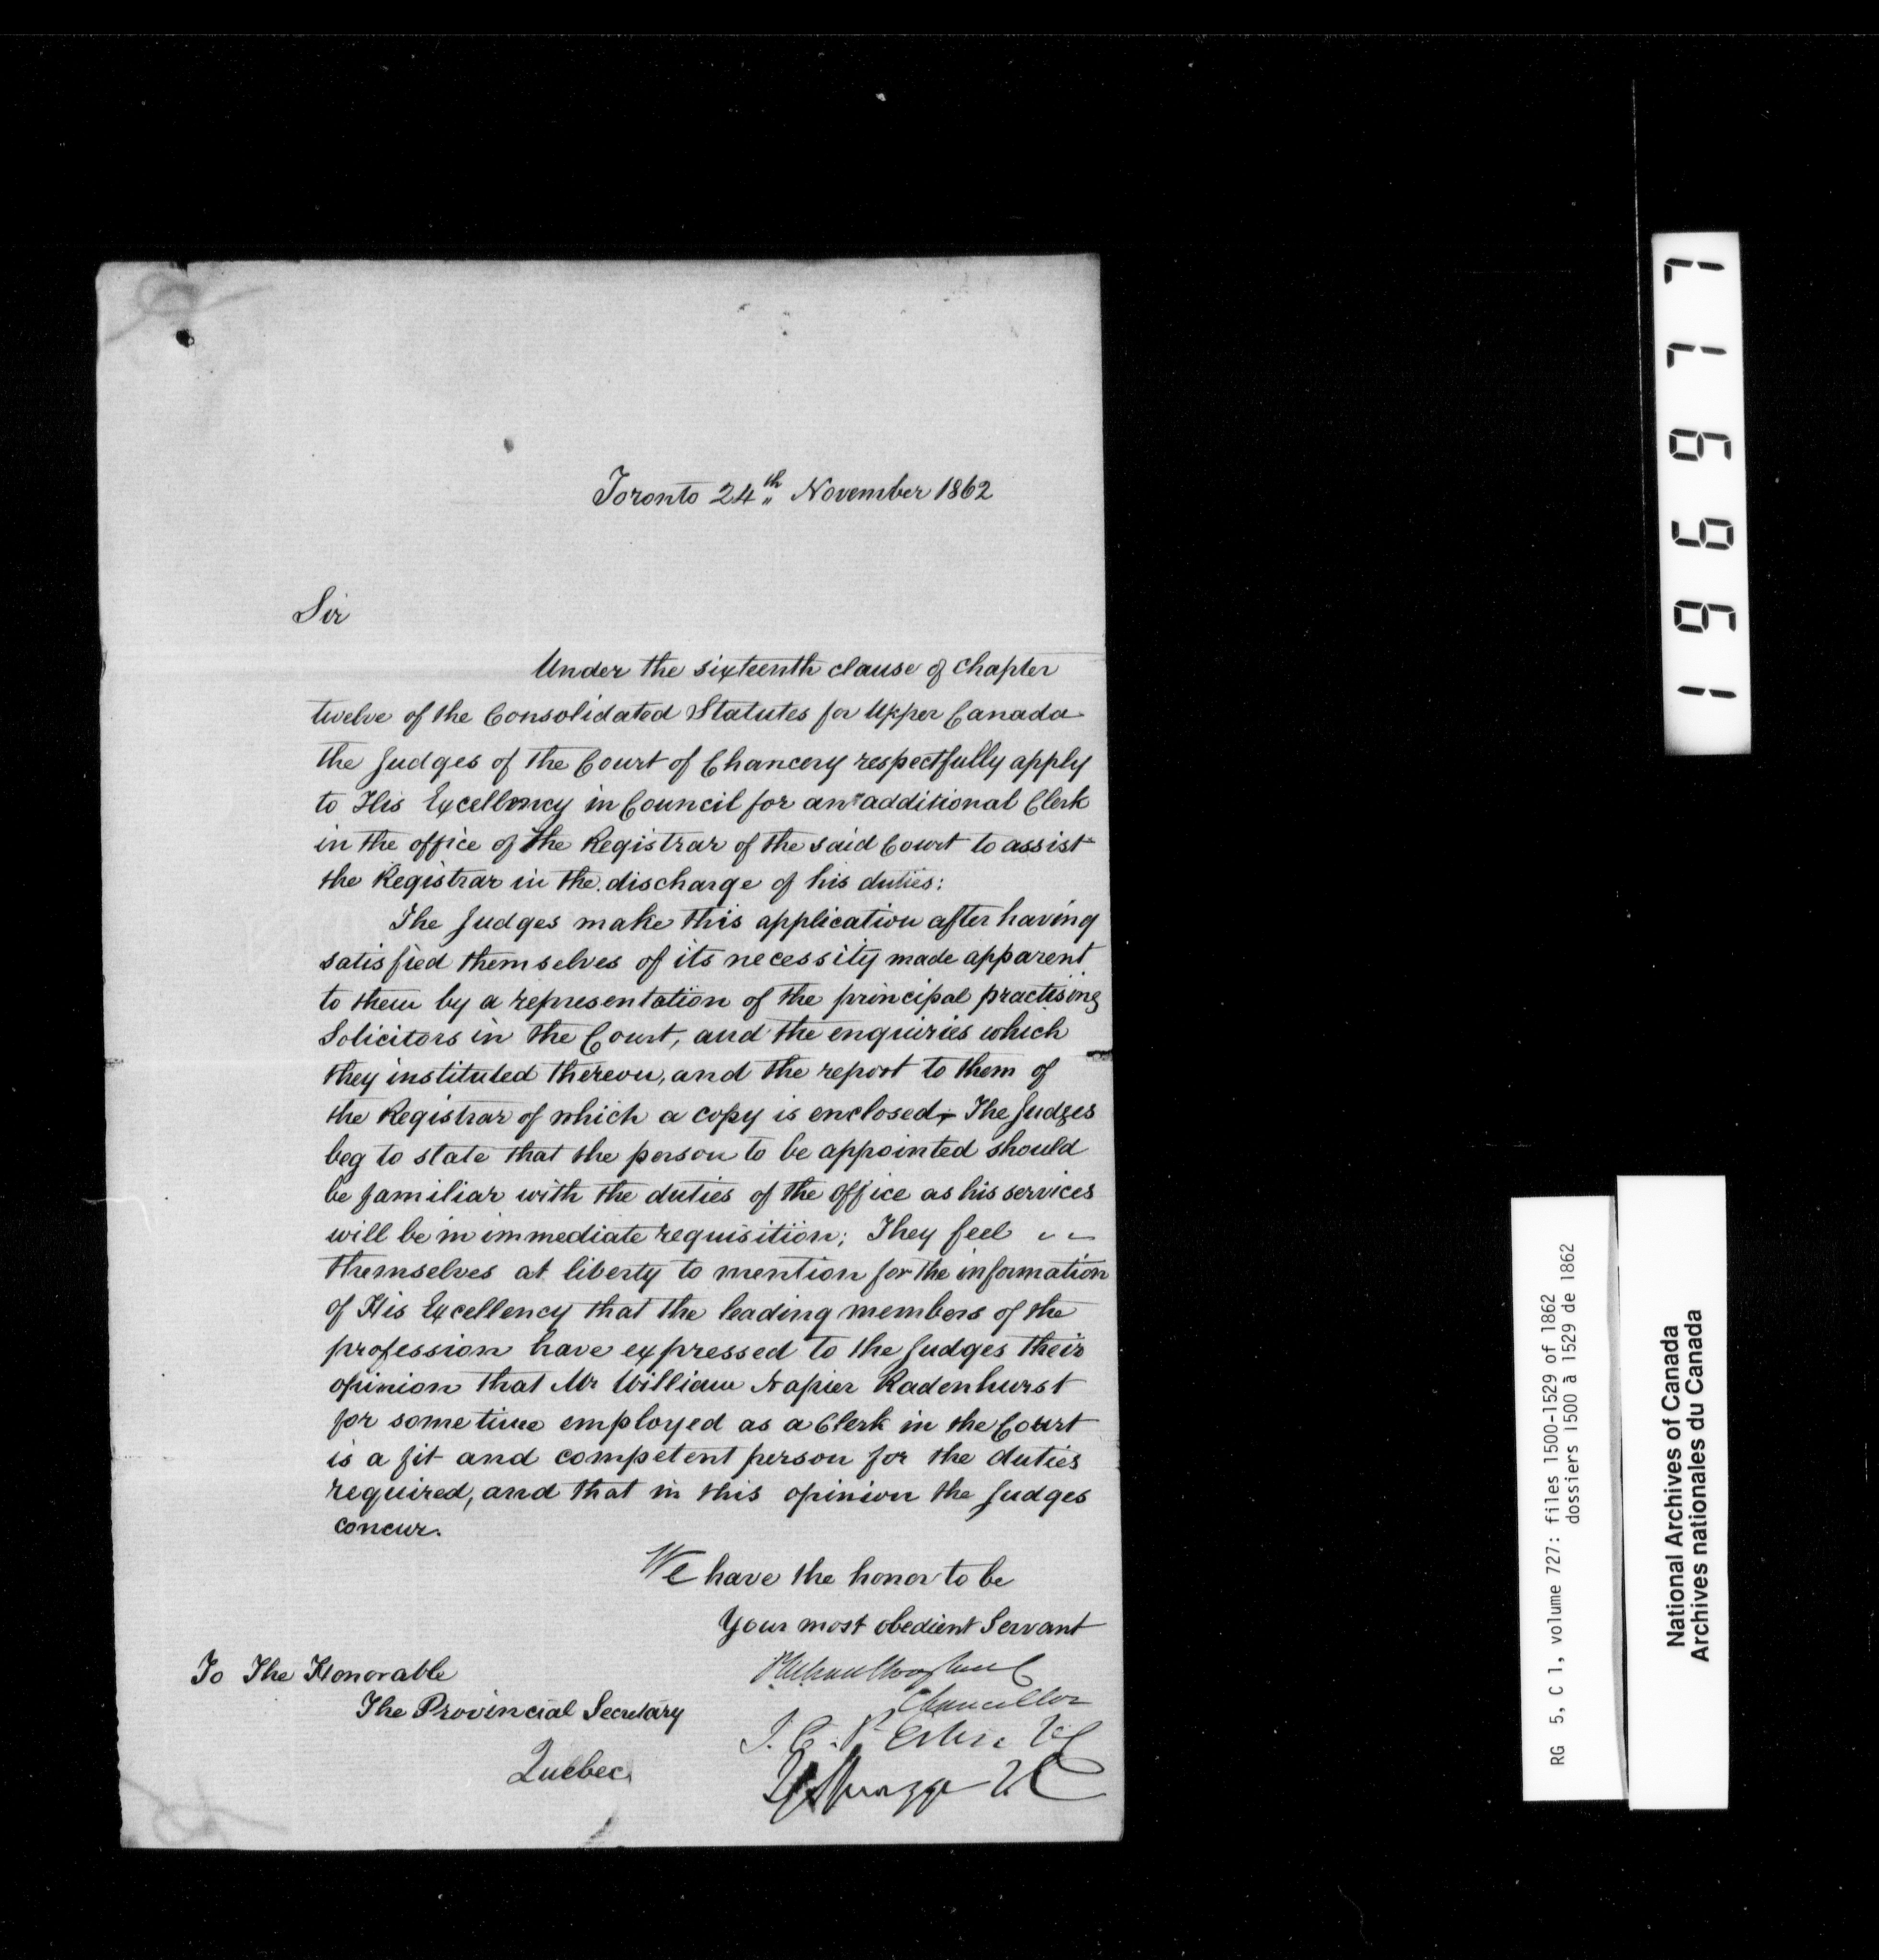 Toronto 24th November 1862
Sir
Under the sixteenth clause of Chapter
twelve of the Consolidated Statutes for Upper Canada
the Judges of the Court of Chancery respectfully apply
to His Excellency in Council for an additional Clerk
in the office of the Registrar of the said Court to assist
the Registrar in the discharge of his duties:
The Judges make this application after having
satisfied themselves of its necessity made apparent
to them by a representation of the principal practising
Solicitors in the Court, and the enquiries which
they instituted thereon, and the report to them of
the Registrar of which a copy is enclosed; The Judges
beg to state that the person to be appointed should
be familiar with the duties of the office as his services
will be in immediate requisition; They feel
themselves at liberty to mention for the information
of His Excellency that the leading members of the
profession have expressed to the Judges their
opinion that Mr William Napier Radenhurst
for some time employed as a Clerk in the Court
is a fit and competent person for the duties
required, and that in this opinion the Judges
concur.
We have the honor to be
Your most obedient Servant
Chancellor
J. C. P. Esten VC
Spragge VC
To The Honorable
The Provincial Secretary
Quebec
199977
RG 5, C 1, volume 727: files 1500-1529 of 1862
dossiers 1500 à 1529 de 1862
National Archives of Canada
Archives nationales du Canada